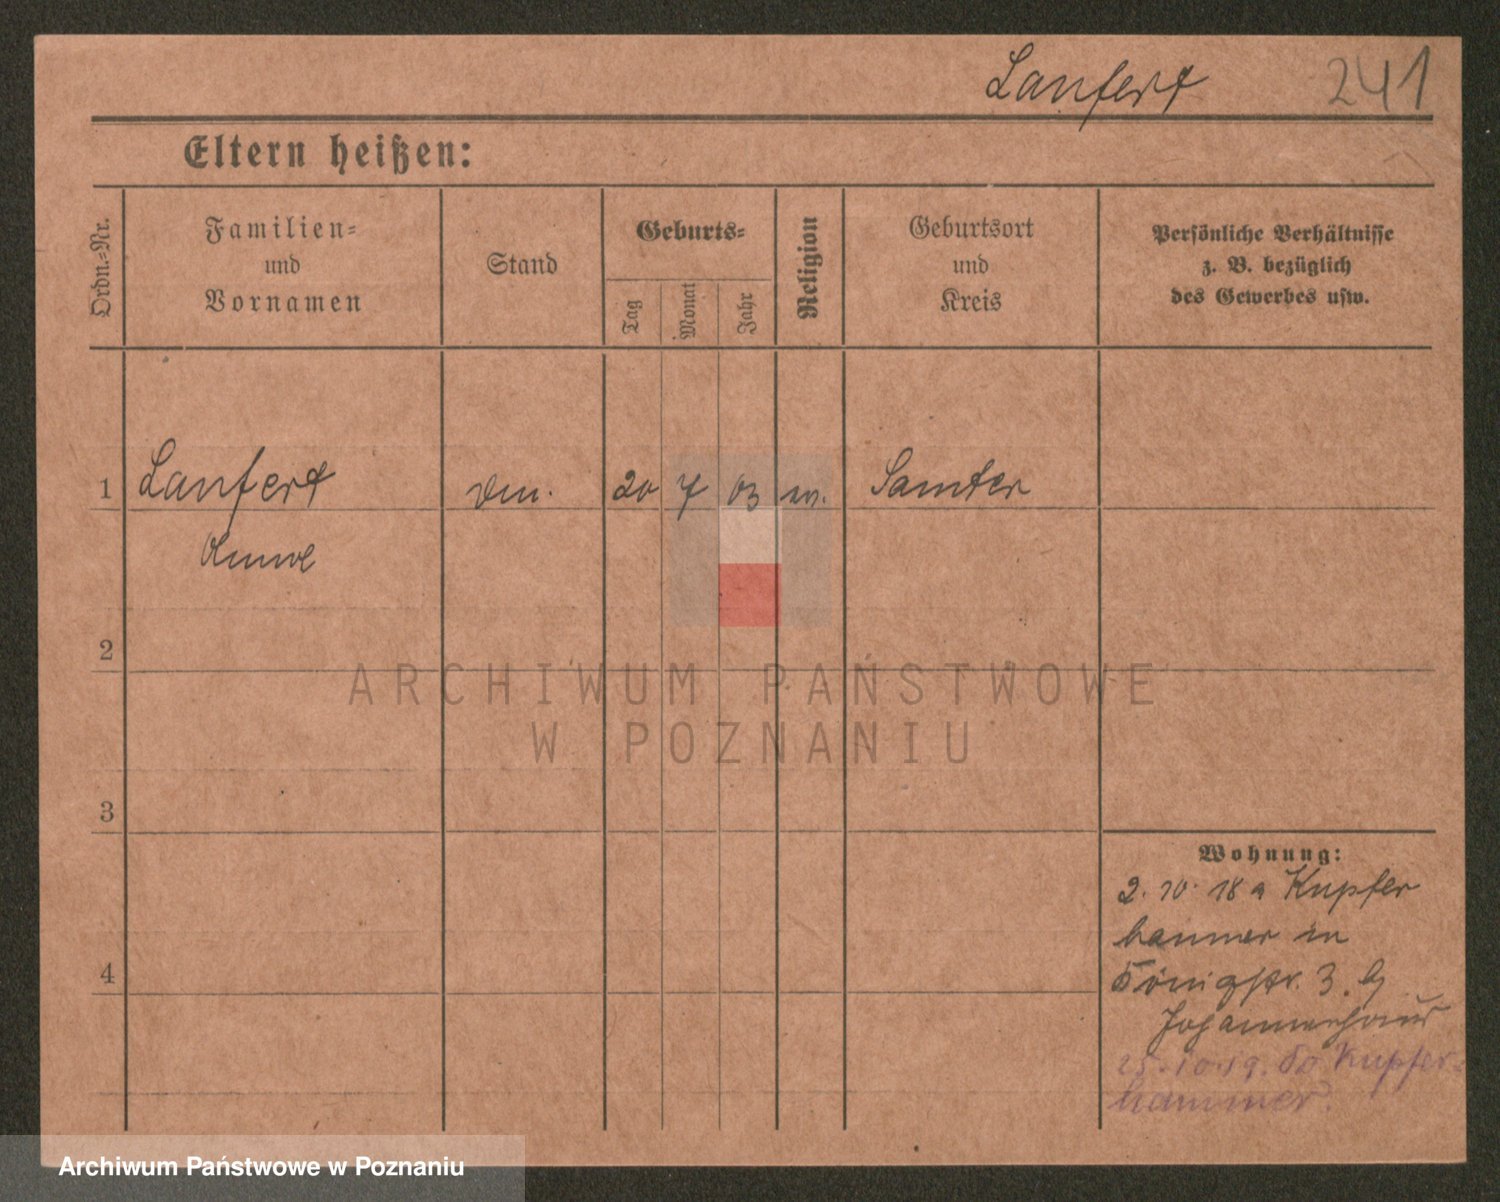 Laufert 241
Eltern heißen:
Ordn.-Nr.
Familien-
und
Vornamen
Stand
Geburts-
Tag
Monat
Jahr
Religion
Geburtsort
und
Kreis
Persönliche Verhältnisse
z. B. bezüglich
des Gewerbes usw.
1 Laufert 20 7 03 Samter
2
ARCHIWUM PAŃSTWOWE
W POZNANIU
3
Wohnung:
2. 10. 18 a Kupfer
hammer in
Königstr. 3. b
Johannenhaus
4
25.10.19. Kupfer-
hammer.
Archiwum Państwowe w Poznaniu